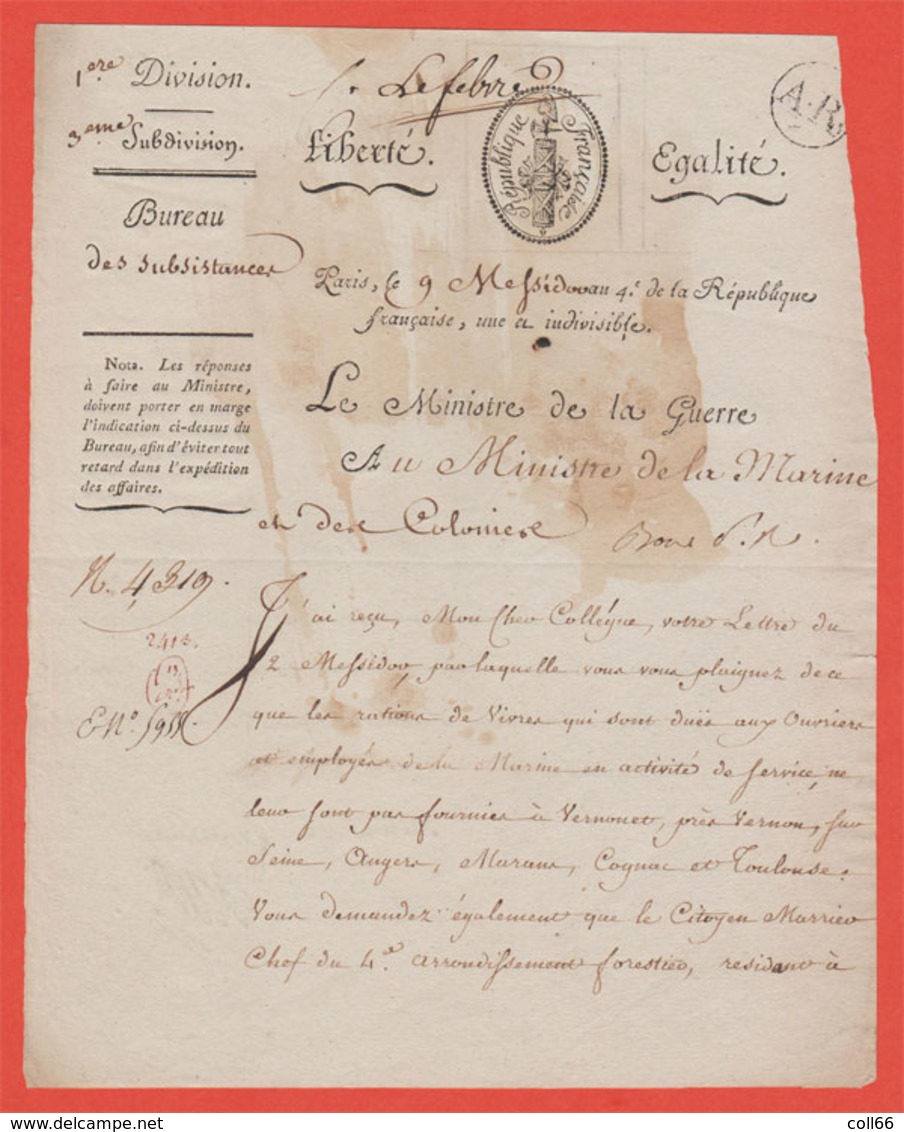 1ere Division.
3eme Subdivision.
Bureau
des subsistances
Nota. Les réponses
à faire au Ministre,
doivent porter en marge
l'indication ci-dessus du
Bureau, afin d'éviter tout
retard dans l'expédition
des affaires.
Lefebvre
A.R.
Liberté.
République Française
Egalité.
Paris, le 9 Messidor an 4e. de la République
française, une et indivisible.
Le Ministre de la Guerre
Au Ministre de la Marine
et des Colonies
N. 4319.
2413.
J'ai reçu, Mon Cher Collégue, votre Lettre du
2 Messidor, par laquelle vous vous plaignez de ce
que les rations de Vivres qui sont duës aux Ouvriers
et employés de la Marine en activité de service, ne
leur sont pas fournies à Vernonet, près Vernon, sur
Seine, Angers, Marans, Cognac et Toulouse.
Vous demandez également que le Citoyen Marrier
Chef du 4.e arrondissement forestier, residant à
coll66